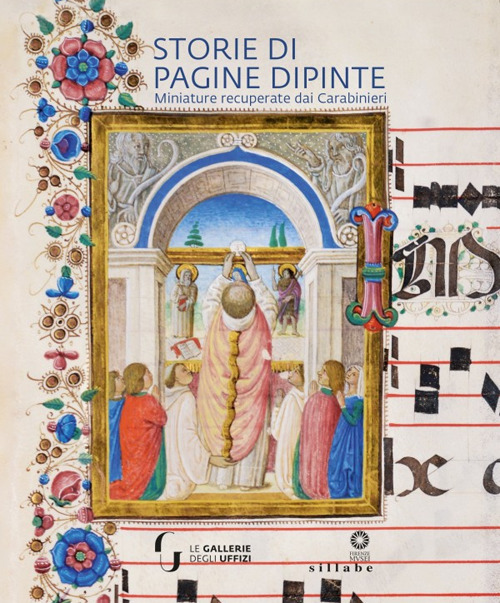 STORIE DI
PAGINE DIPINTE
Miniature recuperate dai Carabinieri
LE GALLERIE
DEGLI UFFIZI
FIRENZE
MUSEI
sillabe